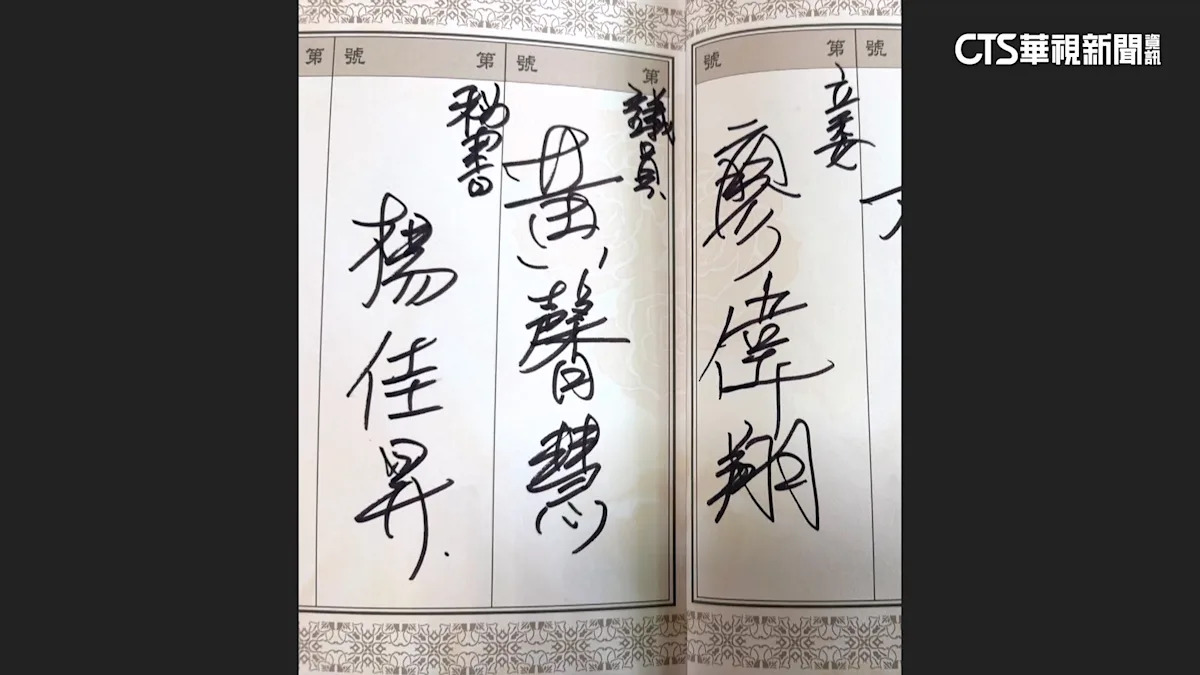 CTS華視新聞資訊
號 第
立委
廖偉翔
號 第
議員
黃馨慧
號 第
秘書
楊佳昇
第